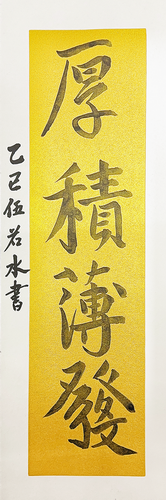 厚積薄發
乙巳伍若水書